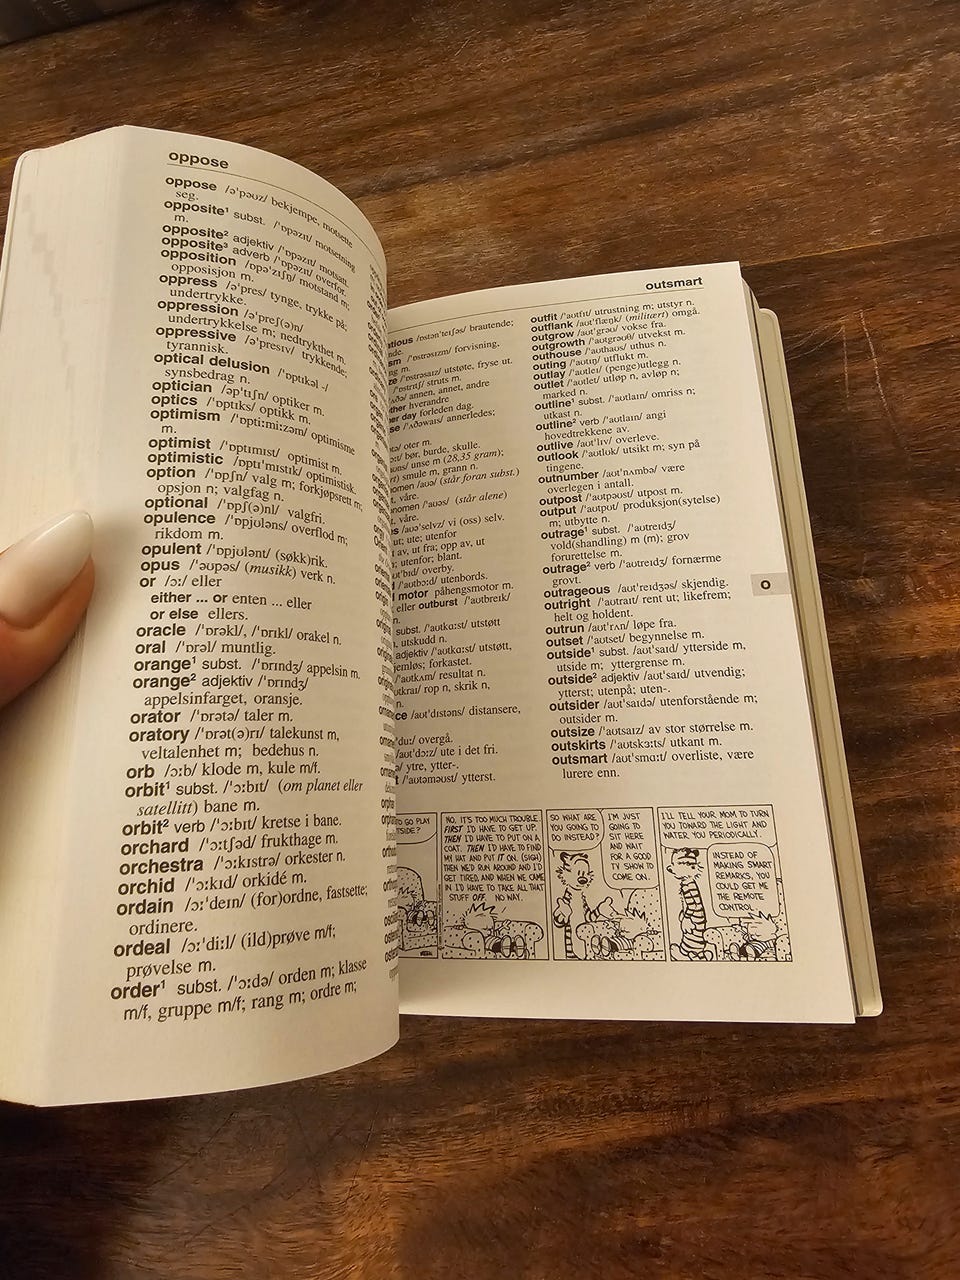 oppose
oppose /ə'pəʊz/ bekjempe, motsette
seg.
opposite¹ subst. /'ɒpəzɪt/ motsetning
m.
opposite² adjektiv /'ɒpəzɪt/ motsatt.
opposite³ adverb /'ɒpəzɪt/ overfor.
opposition /ɒpə'zɪʃn/ motstand m;
opposisjon m.
oppress /ə'pres/ tynge, trykke på;
undertrykke.
oppression /ə'preʃ(ə)n/
undertrykkelse m; nedtrykthet m.
oppressive /ə'presɪv/ trykkende;
tyrannisk.
optical delusion /'ɒptɪkəl -/
synsbedrag n.
optician /əp'tɪʃn/ optiker m.
optics /'ɒptɪks/ optikk m.
optimism /'ɒpti:mi:zəm/ optimisme
m.
optimist /'ɒptɪmɪst/ optimist m.
optimistic /ɒptɪ'mɪstɪk/ optimistisk.
option /'ɒpʃn/ valg m; forkjøpsrett m;
opsjon n; valgfag n.
optional /'ɒpʃ(ə)nl/ valgfri.
opulence /'ɒpjʊləns/ overflod m;
rikdom m.
opulent /'ɒpjʊlənt/ (søkk)rik.
opus /'əʊpəs/ (musikk) verk n.
or /ɔ:/ eller
either ... or enten ... eller
or else ellers.
oracle /'ɒrəkl/, /'ɒrɪkl/ orakel n.
oral /'ɒrəl/ muntlig.
orange¹ subst. /'ɒrɪndʒ/ appelsin m.
orange² adjektiv /'ɒrɪndʒ/
appelsinfarget, oransje.
orator /'ɒrətə/ taler m.
oratory /'ɒrət(ə)rɪ/ talekunst m,
veltalenhet m; bedehus n.
orb /ɔ:b/ klode m, kule m/f.
orbit¹ subst. /'ɔ:bɪt/ (om planet eller
satellitt) bane m.
orbit² verb /'ɔ:bɪt/ kretse i bane.
orchard /'ɔ:tʃəd/ frukthage m.
orchestra /'ɔ:kɪstrə/ orkester n.
orchid /'ɔ:kɪd/ orkidé m.
ordain /ɔ:'deɪn/ (for)ordne, fastsette;
ordinere.
ordeal /ɔ:'di:l/ (ild)prøve m/f;
prøvelse m.
order¹ subst. /'ɔ:də/ orden m; klasse
m/f, gruppe m/f; rang m; ordre m;
outsmart
/ɒstən'teɪʃəs/ brautende;
/'ɒstrəsɪzm/ forvisning.
/'ɒstrəsaɪz/ utstøte, fryse ut.
/'ɒstrɪtʃ/ struts m.
annen, annet, andre
hverandre
day forleden dag.
/'ʌðəwaɪs/ annerledes;
oter m.
bør, burde, skulle.
unse m (28,35 gram);
smule m, grann n.
(står foran subst.)
våre.
/'aʊəs/ (står alene)
våre.
/aʊə'selvz/ vi (oss) selv.
ut; ute; utenfor
av, ut fra; opp av, ut
utenfor; blant.
overby.
/'aʊtbɔ:d/ utenbords.
motor påhengsmotor m.
eller outburst /'aʊtbreɪk/
subst. /'aʊtkɑ:st/ utstøtt
m, utskudd n.
adjektiv /'aʊtkɑ:st/ utstøtt,
hjemløs; forkastet.
/'aʊtkʌm/ resultat n.
rop n, skrik n,
/aʊt'dɪstəns/ distansere,
overgå.
/'aʊt'dɔ:z/ ute i det fri.
ytre, ytter-.
/'aʊtəməʊst/ ytterst.
outfit /'aʊtfɪt/ utrustning m; utstyr n.
outflank /aʊt'flæŋk/ (militært) omgå.
outgrow /aʊt'grəʊ/ vokse fra.
outgrowth /'aʊtgrəʊθ/ utvekst m.
outhouse /'aʊthaʊs/ uthus n.
outing /'aʊtɪŋ/ utflukt m.
outlay /'aʊtleɪ/ (penge)utlegg n.
outlet /'aʊtlet/ utløp n, avløp n;
marked n.
outline¹ subst. /'aʊtlaɪn/ omriss n;
utkast n.
outline² verb /'aʊtlaɪn/ angi
hovedtrekkene av.
outlive /aʊt'lɪv/ overleve.
outlook /'aʊtlʊk/ utsikt m; syn på
tingene.
outnumber /aʊt'nʌmbə/ være
overlegen i antall.
outpost /'aʊtpəʊst/ utpost m.
output /'aʊtpʊt/ produksjon(sytelse)
m; utbytte n.
outrage¹ subst. /'aʊtreɪdʒ/
vold(shandling) m (m); grov
forurettelse m.
outrage² verb /'aʊtreɪdʒ/ fornærme
grovt.
outrageous /aʊt'reɪdʒəs/ skjendig.
outright /'aʊtraɪt/ rent ut; likefrem;
helt og holdent.
outrun /aʊt'rʌn/ løpe fra.
outset /'aʊtset/ begynnelse m.
outside¹ subst. /aʊt'saɪd/ ytterside m,
utside m; yttergrense m.
outside² adjektiv /aʊt'saɪd/ utvendig;
ytterst; utenpå; uten-.
outsider /aʊt'saɪdə/ utenforstående m;
outsider m.
outsize /'aʊtsaɪz/ av stor størrelse m.
outskirts /'aʊtskɜ:ts/ utkant m.
outsmart /aʊt'smɑ:t/ overliste, være
lurere enn.
O
TO GO PLAY
OUTSIDE?
NO, IT'S TOO MUCH TROUBLE.
FIRST I'D HAVE TO GET UP.
THEN I'D HAVE TO PUT ON A
COAT. THEN I'D HAVE TO FIND
MY HAT AND PUT IT ON. (SIGH)
THEN WE'D RUN AROUND AND I'D
GET TIRED, AND WHEN WE CAME
IN I'D HAVE TO TAKE ALL THAT
STUFF OFF. NO WAY.
SO WHAT ARE
YOU GOING TO
DO INSTEAD?
I'M JUST
GOING TO
SIT HERE
AND WAIT
FOR A GOOD
TV SHOW TO
COME ON.
I'LL TELL YOUR MOM TO TURN
YOU TOWARD THE LIGHT AND
WATER YOU PERIODICALLY.
INSTEAD OF
MAKING SMART
REMARKS, YOU
COULD GET ME
THE REMOTE
CONTROL.